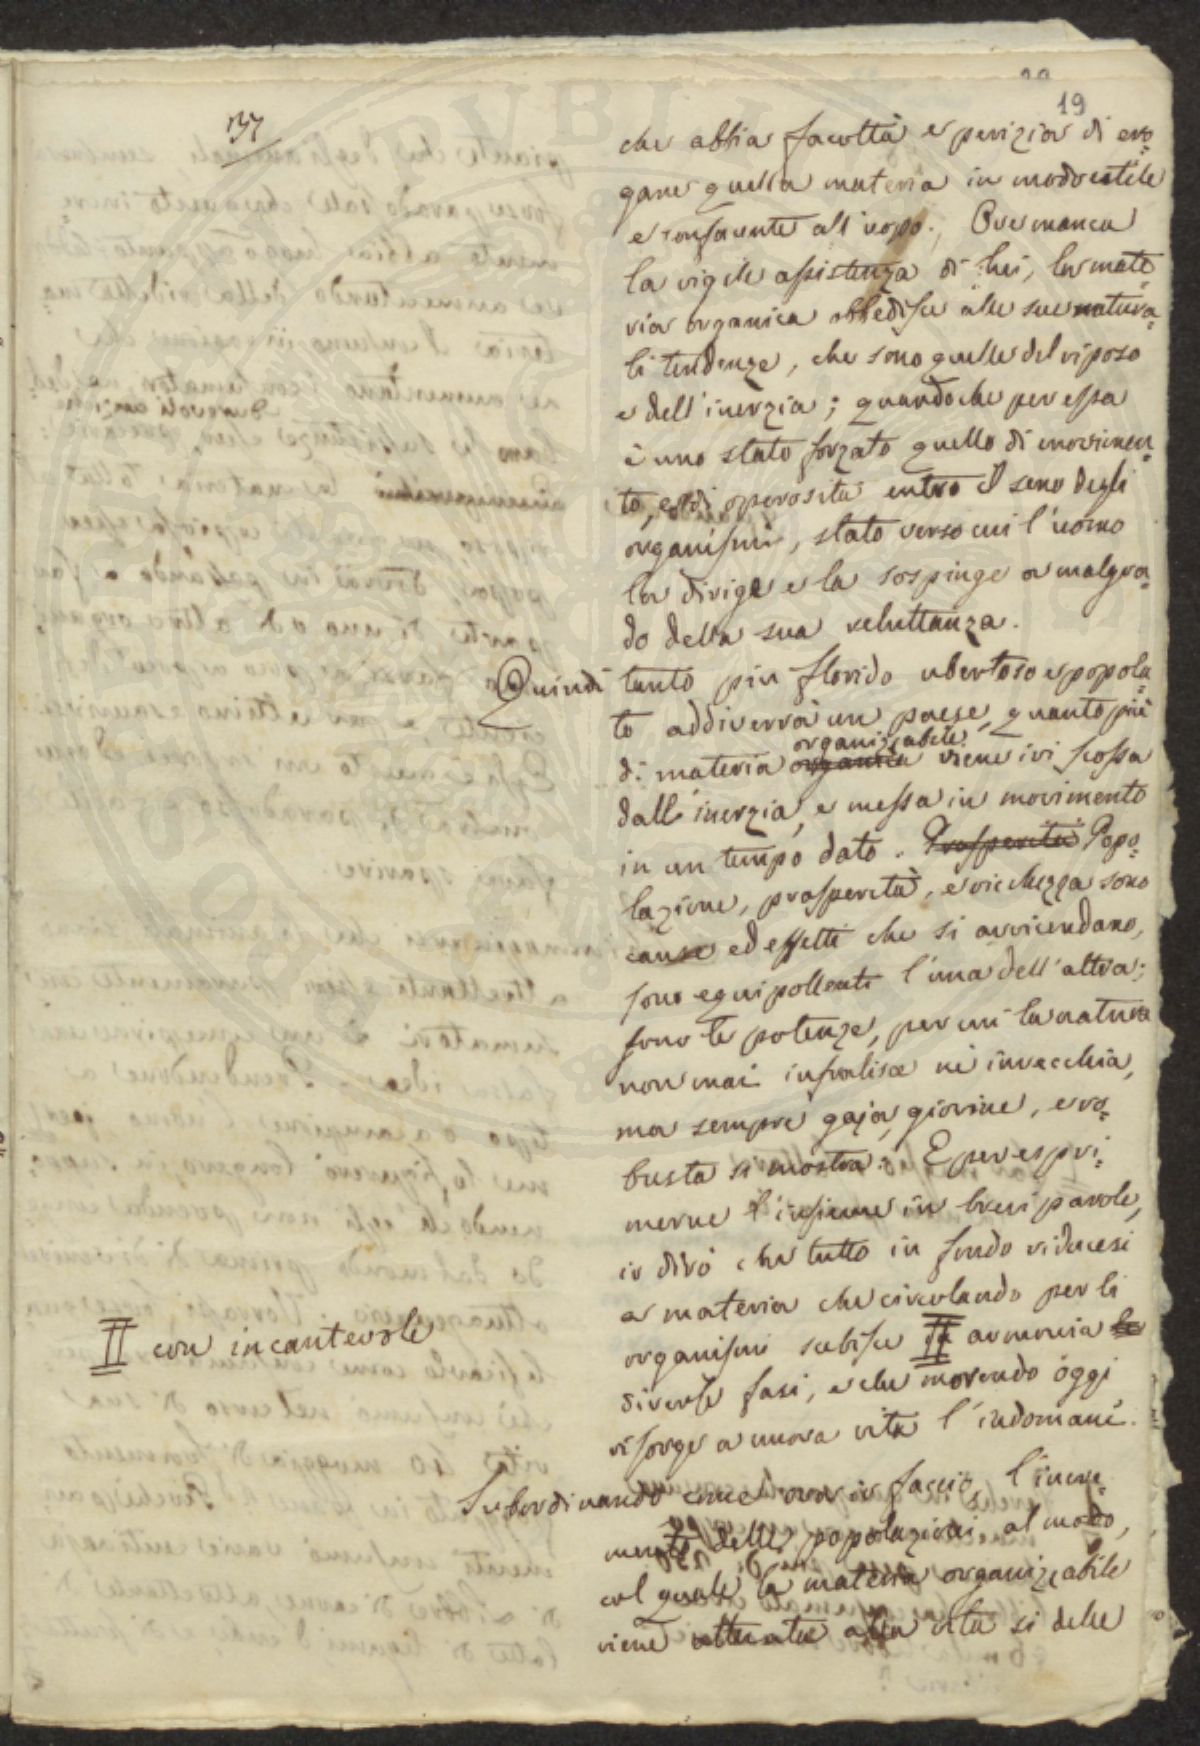 19
137
che abbia facoltà e perizia di ero=
gare quella materia in modo utile
e confacente all'uopo. Ove manca
la vigile assistenza di lui, la mate=
ria organica obbedisce alle sue natura=
li tendenze, che sono quelle del riposo
e dell'inerzia; quandoche per essa
è uno stato forzato quello di movimen=
to, e di operosità entro il seno degli
organismi, stato verso cui l'uomo
la dirige e la sospinge a malgra=
do della sua reluttanza.
Quindi tanto piu florido ubertoso e popola=
to addiverrà un paese, quanto più
organizzabile
di materia organica viene ivi scossa
dall'inerzia, e messa in movimento
in un tempo dato. Prosperità Popo=
lazione, prosperità, e ricchezza sono
cause ed effetti che si avvicendano,
sono equipollenti l'una dell'altra;
sono le potenze, per cui la natura
non mai infralisce nè invecchia,
ma sempre gaja, giovine, e ro=
busta si mostra. E per espri=
merne l'insieme in brevi parole,
io dirò che tutto in fondo riducesi
a materia che circolando per li
organismi subisce II armonia le
diverse fasi, e che morendo oggi
risorge a nuova vita l'indomani.
II con incantevole
Subordinando come ora io faccio, l'incre=
mento delle popolazioni al modo,
col quale la materia organizzabile
viene alla vita si delle